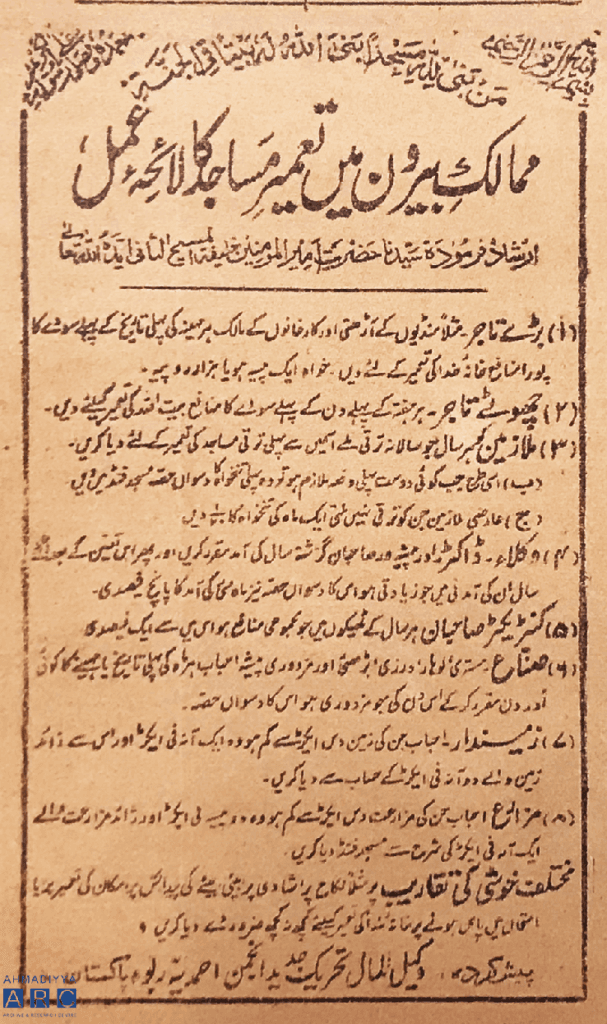 بسم اللہ الرحمن الرحیم
من بنی للہ مسجدا بنی اللہ لہ بیتا فی الجنۃ
ممالک بیرون میں تعمیر مساجد کا لائحہ عمل
ارشاد فرمودہ سیدنا حضرت امیر المومنین خلیفۃ المسیح الثانی ایدہ اللہ تعالیٰ
(۱) بڑے تاجر۔ مثلاً منڈیوں کے آڑھتی اور کارخانوں کے مالک ہر مہینہ کی پہلی تاریخ کے پہلے سودے کا
پورا منافع خانہ خدا کی تعمیر کے لئے دیں۔ خواہ ایک پیسہ ہو یا ہزار روپیہ۔
(۲) چھوٹے تاجر۔ ہر ہفتہ کے پہلے دن کے پہلے سودے کا منافع بیت اللہ کی تعمیر کیلئے دیں۔
(۳) ملازمین کو ہر سال جو سالانہ ترقی ملے اسمیں سے پہلی ترقی مساجد کی تعمیر کے لئے دیا کریں۔
(ب) اسی طرح جب کوئی دوست پہلی دفعہ ملازم ہو تو وہ پہلی تنخواہ کا دسواں حصہ مسجد فنڈ میں دیں
(ج) عارضی ملازمین جن کو ترقی نہیں ملتی ایک ماہ کی تنخواہ کا دیں
(۴) وکلاء۔ ڈاکٹر اور پیشہ ور صاحبان گزشتہ سال کی آمد مقرر کریں اور پھر اس تعین کے بعد
سال ان کی آمدنی میں جو زیادتی ہو اس کا دسواں حصہ نیز ماہ مئی کی آمد کا پانچ فیصدی۔
(۵) کنٹریکٹر صاحبان ہر سال کے ٹھیکوں میں جو مجموعی منافع ہو اس میں سے ایک فیصدی
(۶) صناع۔ مستری لوہار، درزی بڑھئی اور مزدوری پیشہ احباب ہر ماہ کی پہلی تاریخ یا مہینے کا کوئی
اور دن مقرر کر کے اس دن کی جو مزدوری ہو اس کا دسواں حصہ۔
(۷) زمیندار۔ احباب جن کی زمین دس ایکڑ سے کم ہو وہ ایک آنہ فی ایکڑ اور اس سے زائد
زمین والے دو آنہ فی ایکڑ کے حساب سے دیا کریں۔
(۸) مزارع احباب جن کی مزارعت دس ایکڑ سے کم ہو وہ دو پیسہ فی ایکڑ اور زائد مزارعت والے
ایک آنہ فی ایکڑ کی شرح سے مسجد فنڈ دیا کریں۔
مختلف خوشی کی تقاریب پر مثلاً نکاح پر شادی پر بیٹی بیٹے کی پیدائش پر مکان کی تعمیر پر یا
امتحان میں پاس ہونے پر خانہ خدا کی تعمیر کیلئے کچھ نہ کچھ ضرور دے دیا کریں۔
پیش کردہ:۔ وکیل المال تحریک جدید انجمن احمدیہ ربوہ پاکستان
AHMADIYYA
ARC